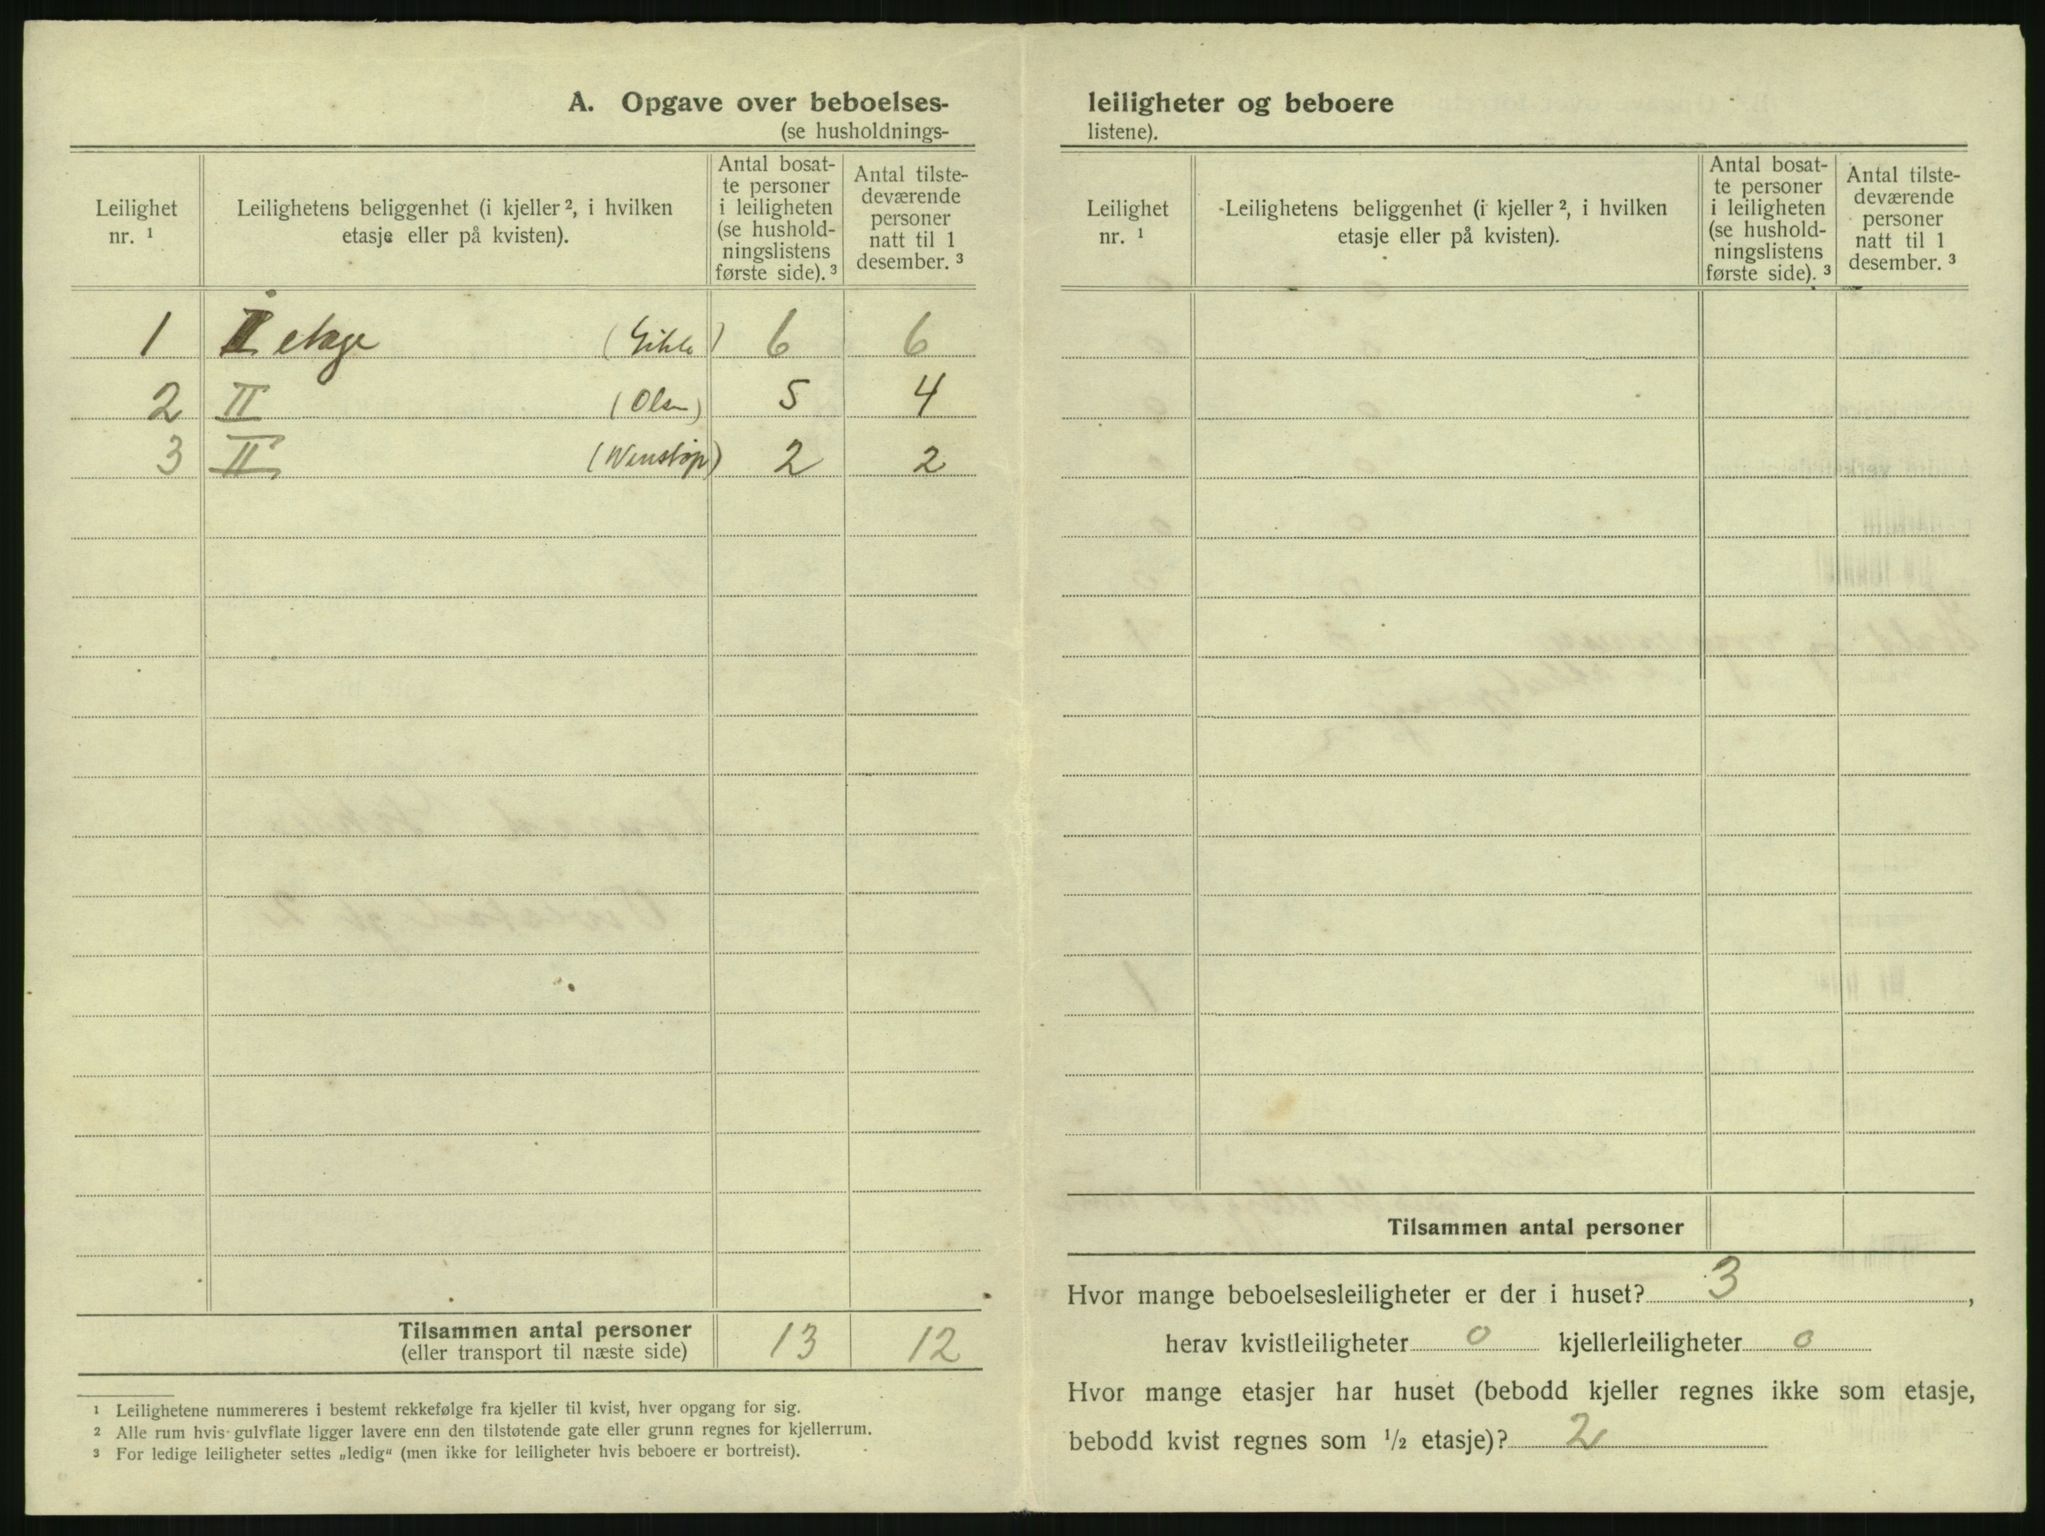 A. Opgave over beboelses-
(se husholdnings-
Leilighet
nr. ¹
Leilighetens beliggenhet (i kjeller ², i hvilken
etasje eller på kvisten).
Antal bosat-
te personer
i leiligheten
(se hushold-
ningslistens
første side). ³
Antal tilste-
deværende
personer
natt til 1
desember. ³
1 I etage 6 6
2 II (Olsen) 5 4
3 II (Wenstøp) 2 2
Tilsammen antal personer 13 12
(eller transport til næste side)
¹ Leilighetene nummereres i bestemt rekkefølge fra kjeller til kvist, hver opgang for sig.
² Alle rum hvis gulvflate ligger lavere enn den tilstøtende gate eller grunn regnes for kjellerrum.
³ For ledige leiligheter settes „ledig“ (men ikke for leiligheter hvis beboere er bortreist).
leiligheter og beboere
listene).
Leilighet
nr. ¹
Leilighetens beliggenhet (i kjeller ², i hvilken
etasje eller på kvisten).
Antal bosat-
te personer
i leiligheten
(se hushold-
ningslistens
første side). ³
Antal tilste-
deværende
personer
natt til 1
desember. ³
Tilsammen antal personer
Hvor mange beboelsesleiligheter er der i huset? 3,
herav kvistleiligheter 0 kjellerleiligheter 0
Hvor mange etasjer har huset (bebodd kjeller regnes ikke som etasje,
bebodd kvist regnes som ½ etasje)? 2